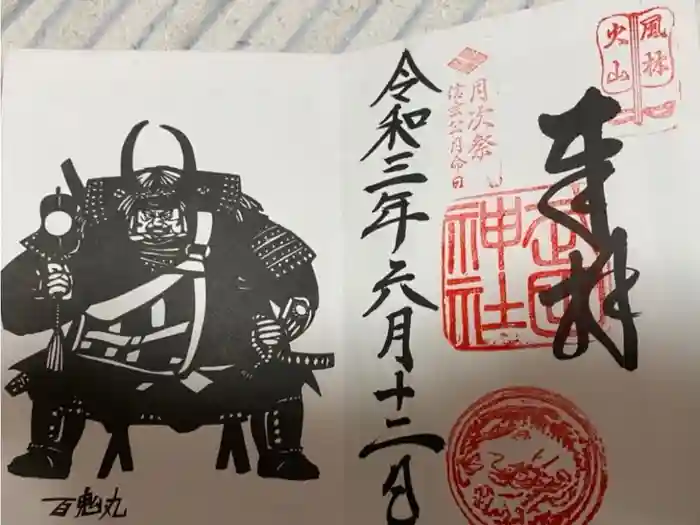 風林
火山
奉拝
月次祭
信玄公月命日
武田
神社
令和三年六月十二日
百鬼丸